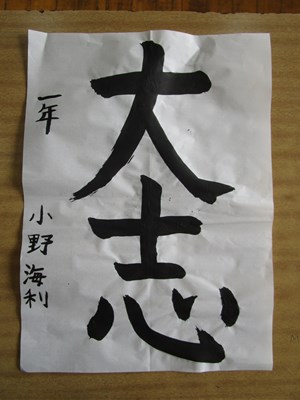 大志
一年 小野海利